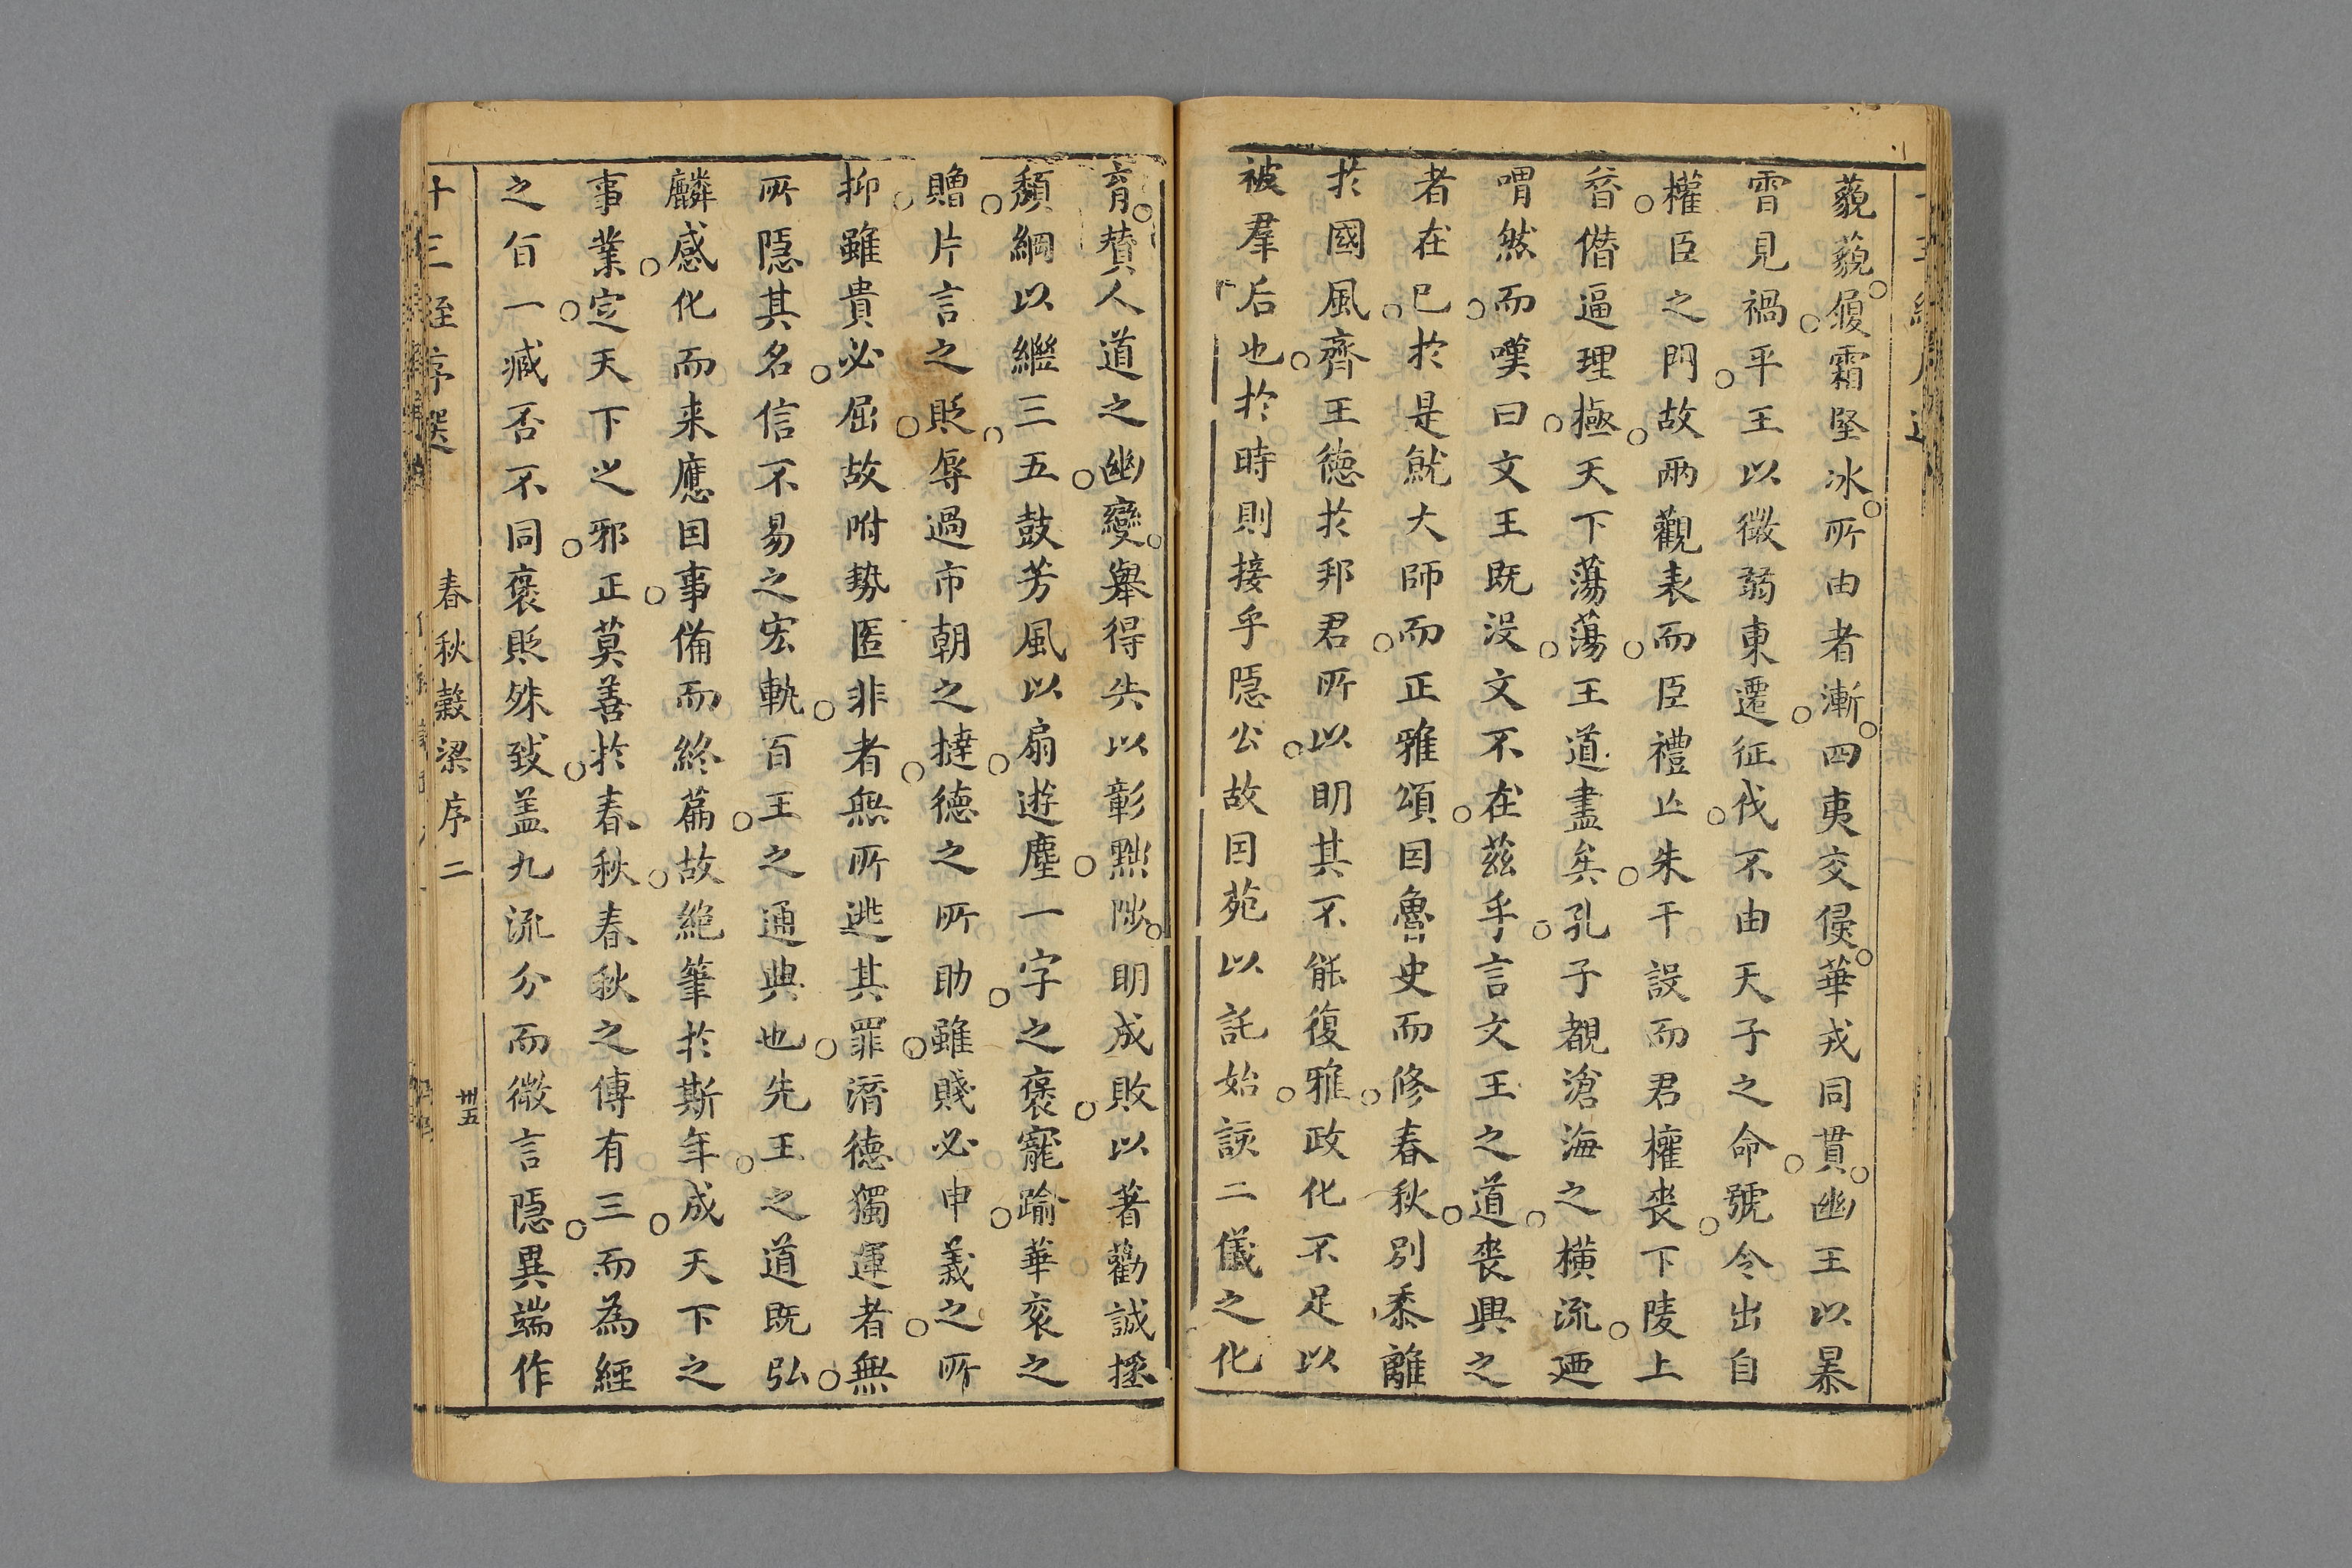 藐藐履霜堅冰所由者漸四夷交侵華戎同貫幽王以暴
霄見禍平王以微弱東遷征伐不由天子之命號令出自
權臣之門故兩觀表而臣禮亡朱干設而君權喪下陵上
朁僣逼理極天下蕩蕩王道盡矣孔子覩滄海之橫流迺
喟然而嘆曰文王既没文不在茲乎言文王之道喪興之
者在已於是就大師而正雅頌因魯史而修春秋別黍離
於國風齊王德於邦君所以明其不能復雅政化不足以
被羣后也於時則接乎隱公故因苑以託始該二儀之化
育賛人道之幽變舉得失以彰黜陟明成敗以著勸誡拯
頽綱以繼三五鼓芳風以扇遊塵一字之褒寵踰華衮之
贈片言之貶辱過市朝之撻德之所助雖賤必申義之所
抑雖貴必屈故附勢匿非者無所逃其罪潛德獨運者無
所隱其名信不易之宏軌百王之通典也先王之道既弘
麟感化而来應因事備而終篇故絕筆於斯年成天下之
事業定天下之邪正莫善於春秋春秋之傳有三而為經
之旨一臧否不同褒貶殊致盖九流分而微言隱異端作
十三經序選 春秋穀梁序二 卅五